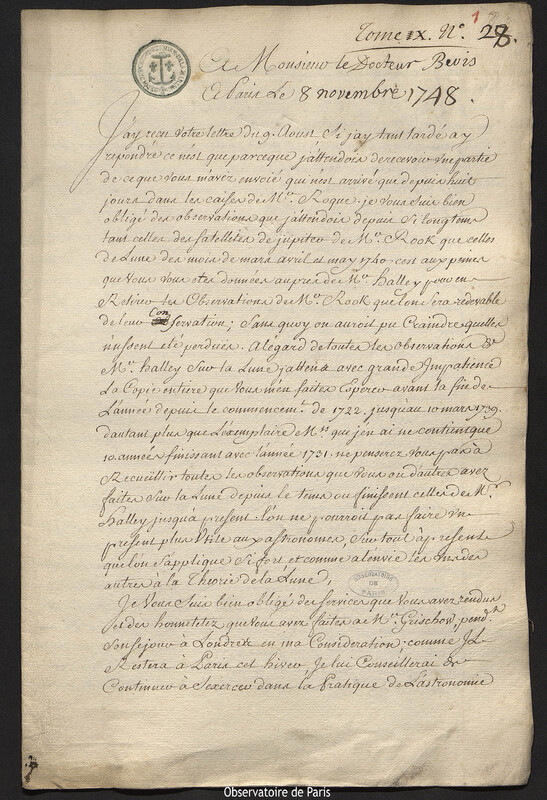 1
Tome IX. N.º 28.
A Monsieur le Docteur Bevis
A Paris Le 8 novembre 1748.
J'ay receu votre lettre du 9. Aoust. Si jay tant tardé a y
repondre ce n'est que parceque j'attendois de recevoir une partie
de ce que vous m'avez envoié qui n'est arrivé que depuis huit
jours dans les caisses de Mr. Roque. je vous suis bien
obligé des observations que j'attendois depuis si longtems
tant celles des satellites de jupiter de Mr. Rook que celles
de Lune des mois de mars avril et may 1740. c'est aux peines
que vous vous etes données aupres de Mr. halley pour en
Retirer les Observations de Mr. Rook que l'on sera redevable
de leur Conservation; Sans quoy on auroit pu Craindre quelles
n'eussent eté perdues. Alégard de toutes les observations de
Mr. halley Sur la Lune j'attens avec grande Impatience
La Copie entiere que vous m'en faites Esperer avant la fin de
L'année depuis le commencemt. de 1722. jusqu'au 10 mars 1739.
dautant plus que L'exemplaire de Mrs. que j'en ai ne contient que
10. années finissant avec l'année 1731. ne penserez vous pas à
Recueillir toutes les observations que vous ou d'autres avez
faites Sur la Lune depuis le tems ou finissent celles de Mr.
halley jusqu'à present. l'on ne pourroit pas faire un
present plus Utile aux astronomes, Sur tout à present
que lon S'applique Si fort et comme alenvie les uns des
autres à la Theorie de la Lune.
Je Vous Suis bien obligé des services que vous avez rendus
et des honnetetez que vous avez faites a Mr. Grischow, pendt.
Son sejour à Londres en ma Consideration; comme JL
Restera à Paris cet hiver Je lui Conseillerai de
Continuer à Sexercer dans la Pratique de L'astronomie
OBSERVATOIRE
DE
PARIS
Observatoire de Paris